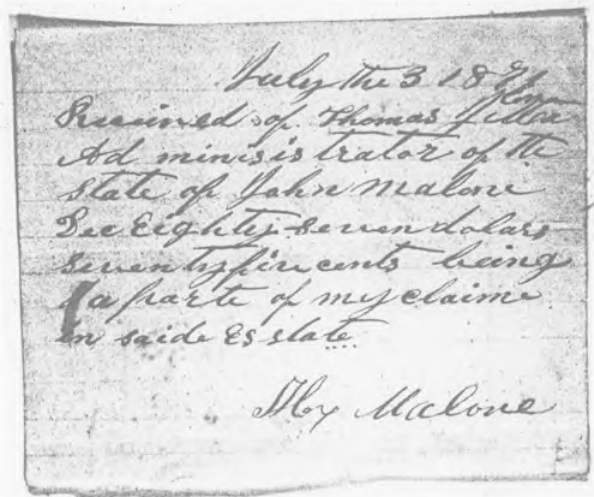 July the 3 18
Received of Thomas
Ad minisistrator of the
state of John Malone
Dec Eighty-seven dolars
seventyfive cents being
a parte of my claime
in saide Es state
Malone